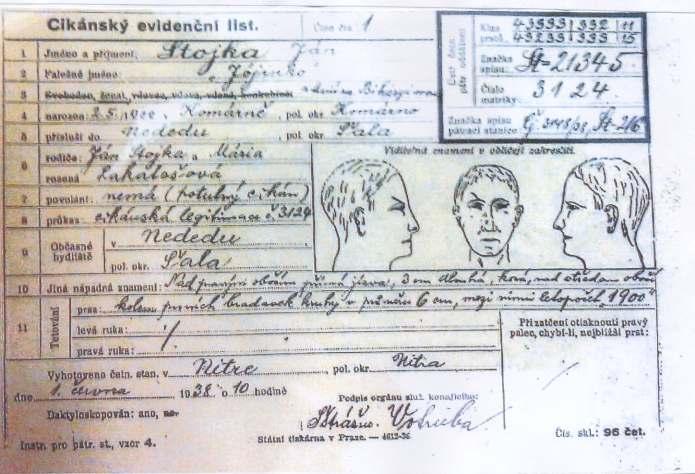 Cikánský evidenční list.
Číslo čtn. 1
1 Jméno a příjmení: Stojka Ján
2 Falešné jméno: „Jójinko“
3 Svoboden, ženat, vdovec, vdova, vdaná, konkubina:
4 narozen: 25. 1900 v Komárně pol. okr. Komárno
5 přísluší do Nededu pol. okr. Šala
6 rodiče: Ján Stojka a Mária
rozená Lakatosová
7 povolání: nemá (potulný cikán)
8 průkaz: cikánská legitimace č. 3124
9 Občasné bydliště v Nededu
pol. okr. Šala
Ústř. četn. pátr. oddělení
Klas. prstů. 43333 332 11
43233 333 15
Značka spisu: Št-21345
Číslo matriky: 3124
Značka spisu pátrací stanice Č. 3148/38 Št-216
Viditelná znamení v obličeji zakresliti.
10 Jiná nápadná znamení: Nad pravým obočím příčná jizva, 3 cm dlouhá, nad středem
11 Tetování
prsa: kolem prsních bradavek kruhy v průměru 6 cm, mezi nimi letopočet 1900
levá ruka: /.
pravá ruka:
Při zatčení otisknouti pravý palec, chybí-li, nejbližší prst:
Vyhotoveno četn. stan. v Nitře pol. okr. Nitra
dne 1. června 1938 o 10 hodině
Podpis orgánu služ. konajícího:
Daktyloskopován: ano, ne.
Stráżm. Votruba
Instr. pro pátr. st., vzor 4.
Státní tiskárna v Praze. — 4612-36
Čís. skl.: 96 čet.